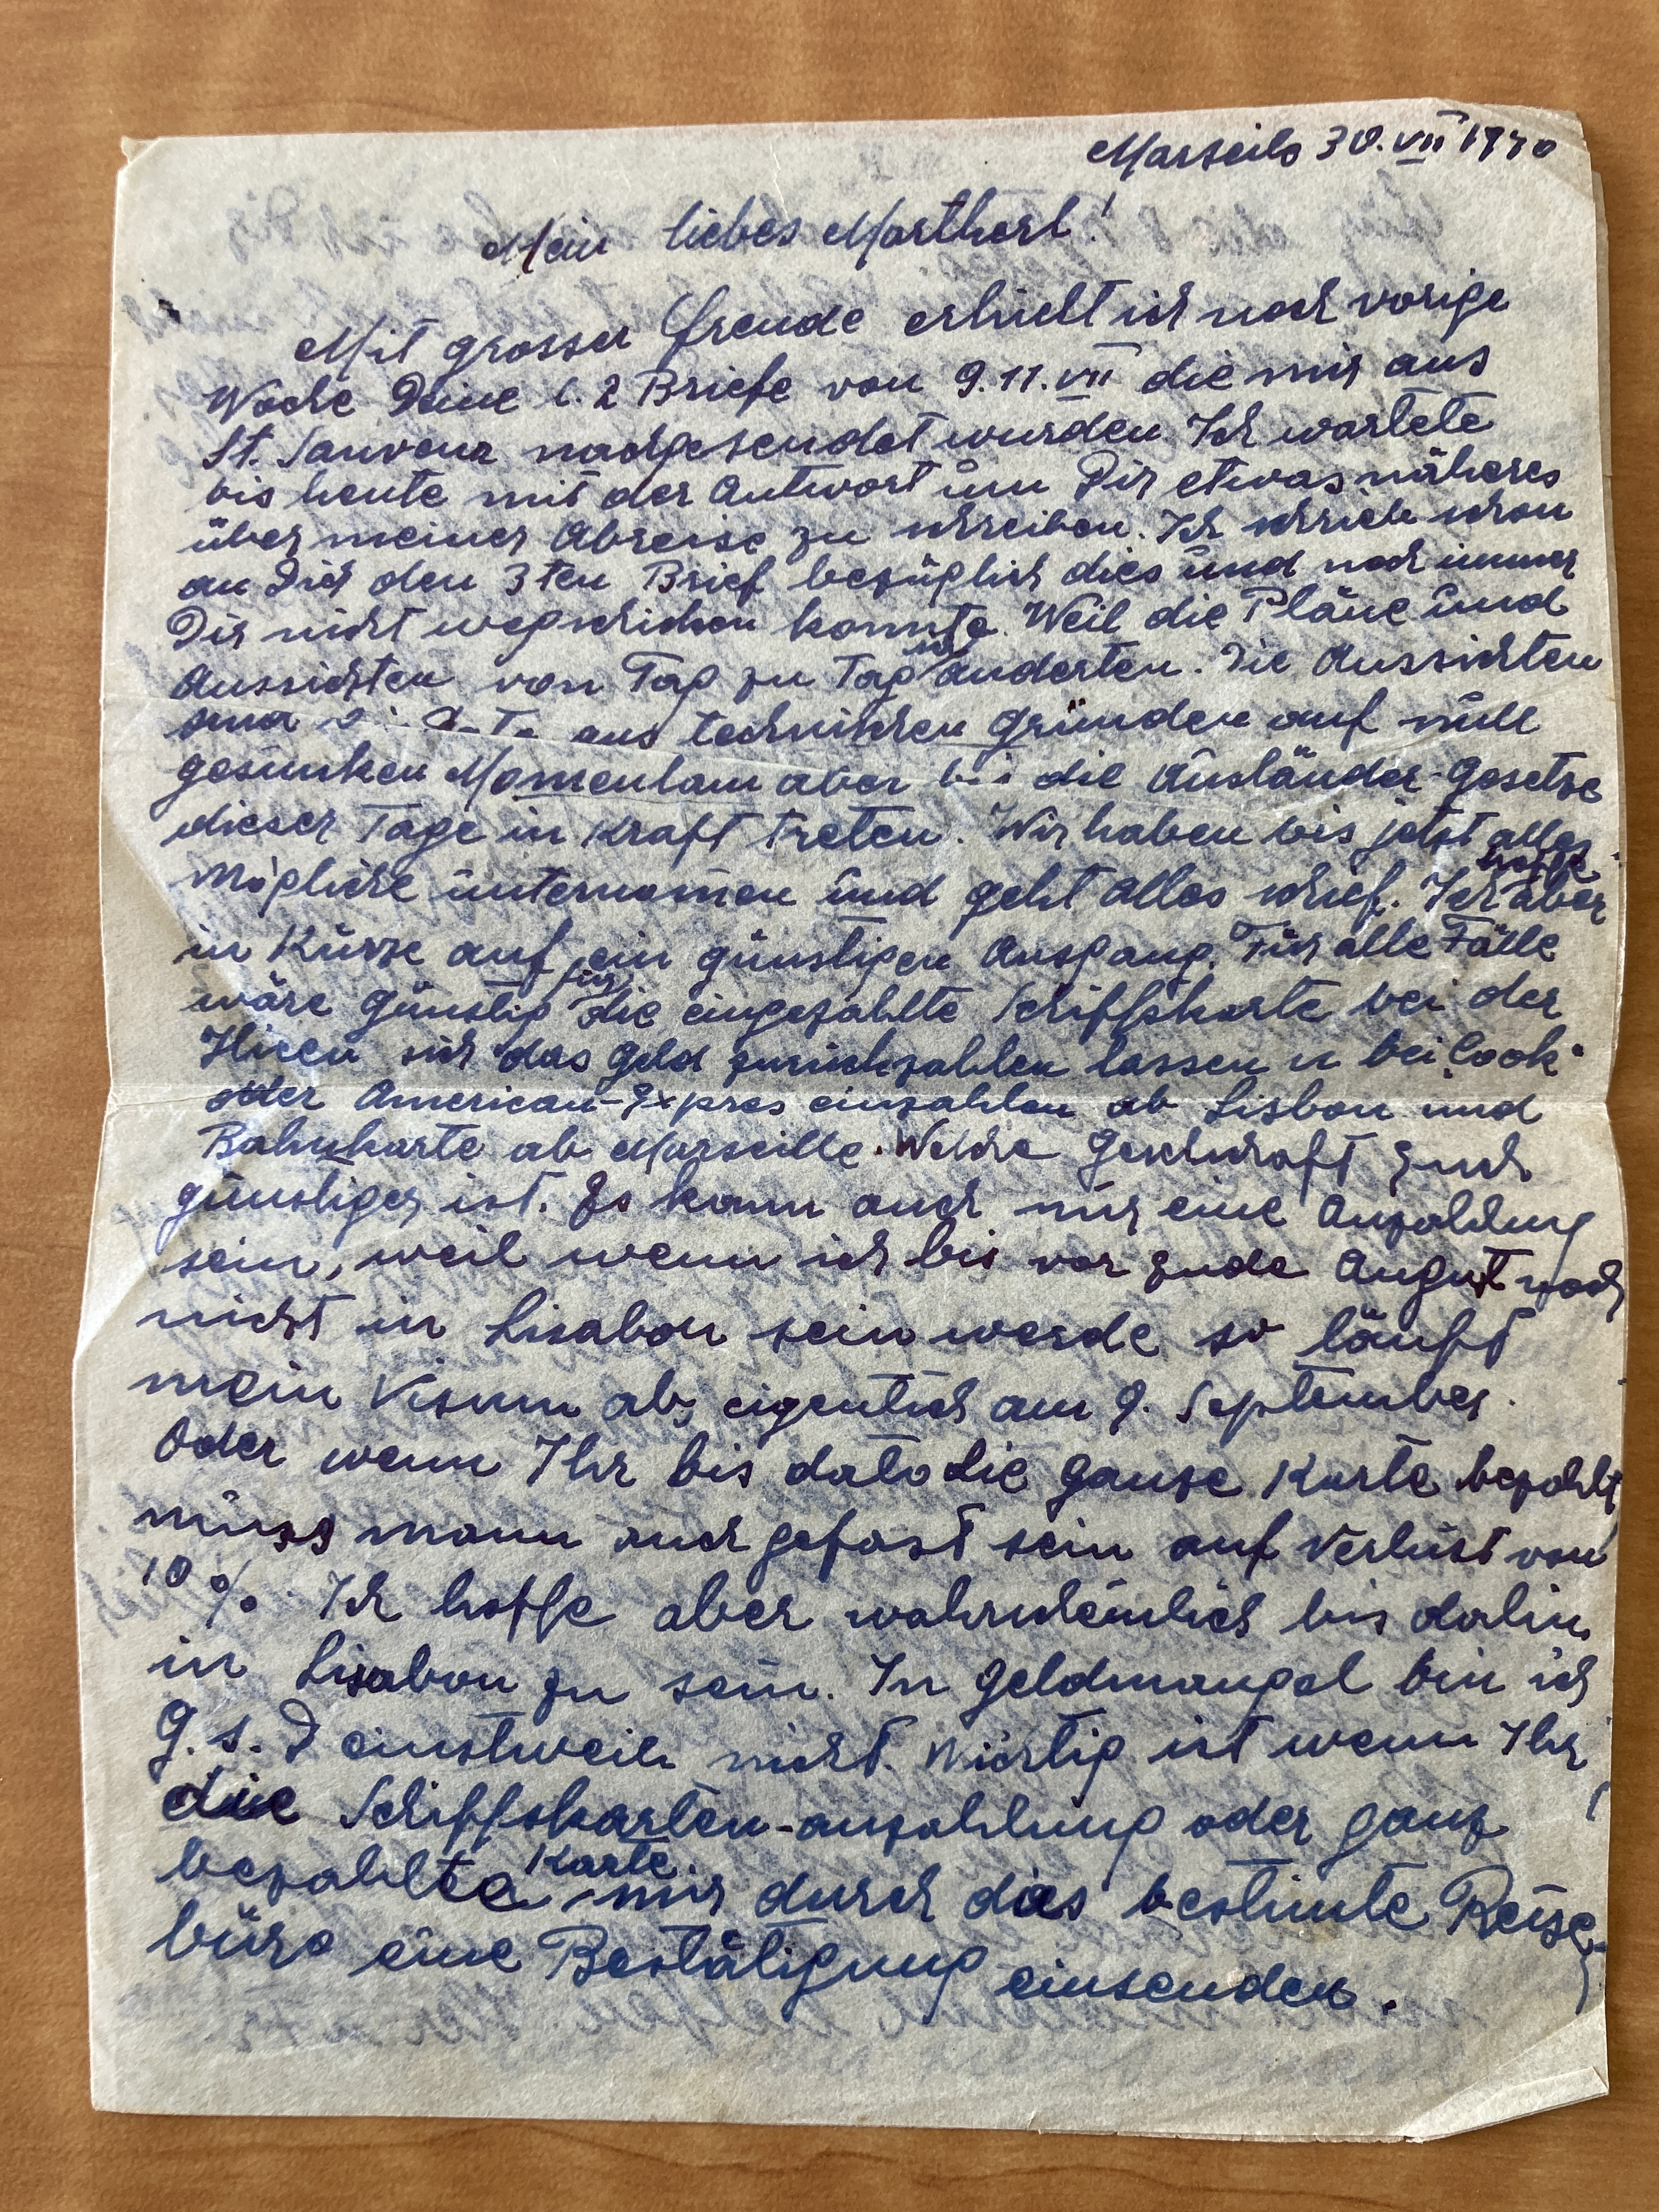 Marseile 30. VII 1940
Mein liebes Martherl!
Mit grosser Freude erhielt ich noch vorige
Woche Deine l. 2 Briefe von 9. 11. VII die mir aus
St. Sauveur nachgesendet wurden. Ich wartete
bis heute mit der Antwort um Dir etwas näheres
über meiner Abreise zu schreiben. Ich schrieb schon
an Dich den 3ten Brief bezüglich dies und noch immer
Dir nicht wegschicken konnte. Weil die Pläne und
Aussichten von Tag zu Tag sich änderten. Die Aussichten
sind aus technischen Gründen auf null
gesunken Momentam aber die Ausländer-Gesetze
dieser Tage in Kraft treten. Wir haben bis jetzt alles
Mögliche unternomen und geht alles schief. Ich hoffe aber
in Kürze auf ein günstigen Ausgang. Für alle Fälle
wäre günstig für die eingezahlte Schiffskarte bei der
sich das Geld zurückzahlen lassen u bei Cook
oder American-Expres einzahlen ab Lisbon und
Bahnkarte ab Marseille. Welche Geselschaft Euch
günstiger ist. Es kann auch nur eine Anzahlung
sein, weil wenn ich bis vor Ende August noch
nicht in Lisabon sein werde so läuft
mein Visum ab, eigentlich am 9. September.
Oder wenn Ihr bis dato die ganze Karte bezahlt
müss mann auch gefast sein auf Verlust von
10 % Ich hoffe aber wahrscheinlich bis dahin
in Lisabon zu sein. In Geldmangel bin ich
G. s. D einstweiln nicht. Wichtig ist wenn Ihr
die Schiffskarten-anzahlung oder ganz
bezahlte Karte mir durch das bestimte Reise-
büro eine Bestätigung einsenden.